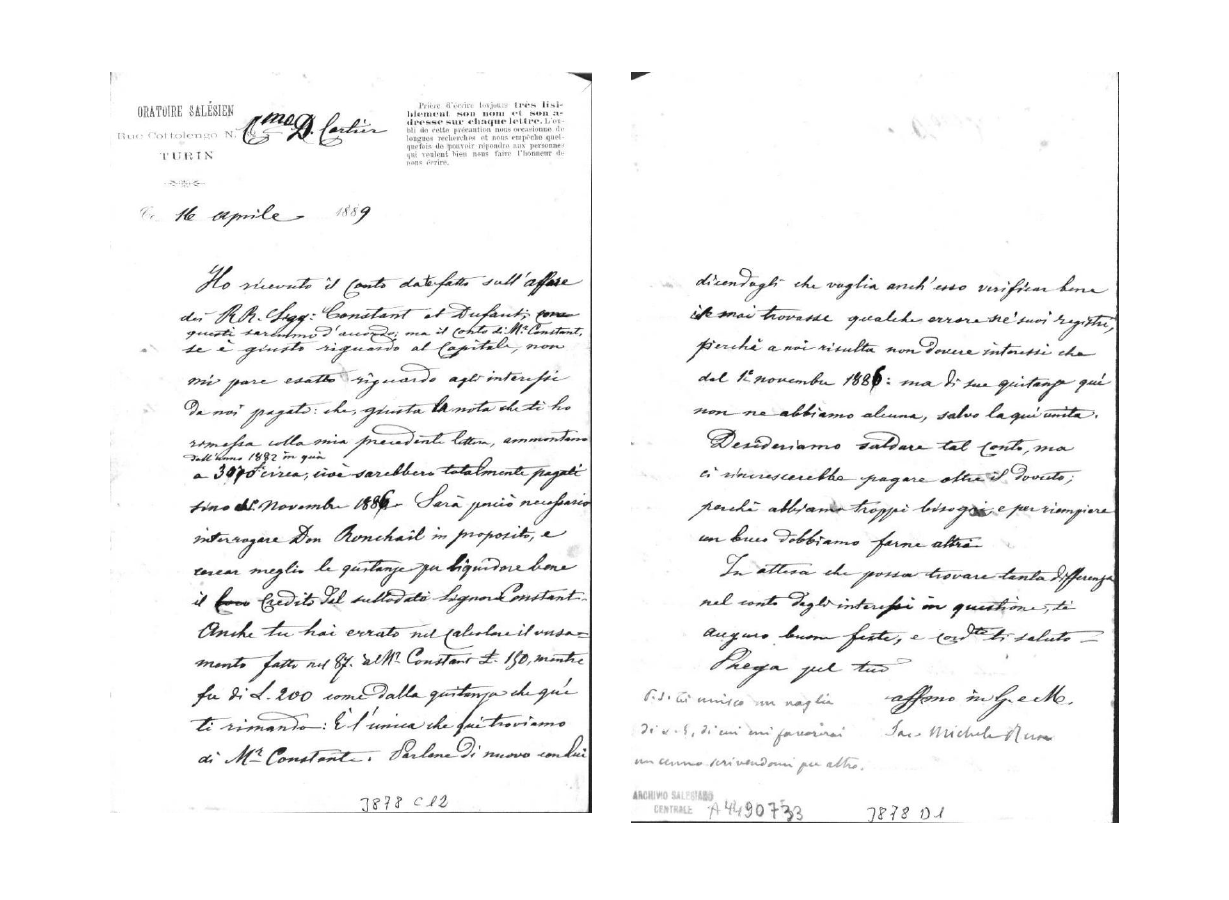 ORATOIRE SALÉSIEN
Rue Cottolengo N.
TURIN
C.mo D. Cartier
Prière d'écrire toujours très lisi-
blement son nom et son a-
dresse sur chaque lettre. L'ou-
bli de cette précaution nous occasionne de
longues recherches et nous empêche quel-
quefois de pouvoir répondre aux personnes
qui veulent bien nous faire l'honneur de
nous écrire.
16 aprile 1889
Ho ricevuto il Conto fatto sull'affare
dei RR. Sigg: Constant et Dufaut;
questi saremmo d'accordo; ma il conto di Mr Constant,
se è giusto riguardo al Capitale, non
mi pare esatto riguardo agli interessi
da noi pagati: che, giusta la nota che ti ho
rimessa colla mia precedente lettera, ammontano
dall'anno 1882 in quà
a circa, cioè sarebbero totalmente pagati
sino Novembre 1886. Sarà perciò necessario
interrogare Don Ronchail in proposito, e
cercar meglio le quitanze per liquidare bene
il Credito del sullodato Signor Constant.
Anche tu hai errato nel calcolare il versa=
mento fatto nel 87. al Mr Constant L. 150, mentre
fu di L. 200 come dalla quitanza che quì
ti rimando: È l'unica che quì troviamo
di Mr Constant. Parlane di nuovo con lui
J878 C12
dicendogli che voglia anch'esso verificar bene
se mai trovasse qualche errore ne' suoi registri,
perchè a noi risulta non dovere interessi che
dal 1° novembre 1886: ma di sue quitanze quì
non ne abbiamo alcuna, salvo la quì unita.
Desideriamo saldare tal conto, ma
ci rincrescerebbe pagare oltre il dovuto;
perchè abbiamo troppi bisogni, e per riempiere
un buco dobbiamo farne altri.
In attesa che possa trovare tanta differenza
nel conto degli interessi in questione, ti
auguro buone feste, e cordte ti saluto =
Prega pel tuo
affmo in G. e M.
Sac. Michele Rua
P.S. Ti unisco un vaglia
di L. 5, di cui mi favorirai
un cenno scrivendomi per altro.
ARCHIVIO SALESIANO
CENTRALE
A4490733
J878 D1